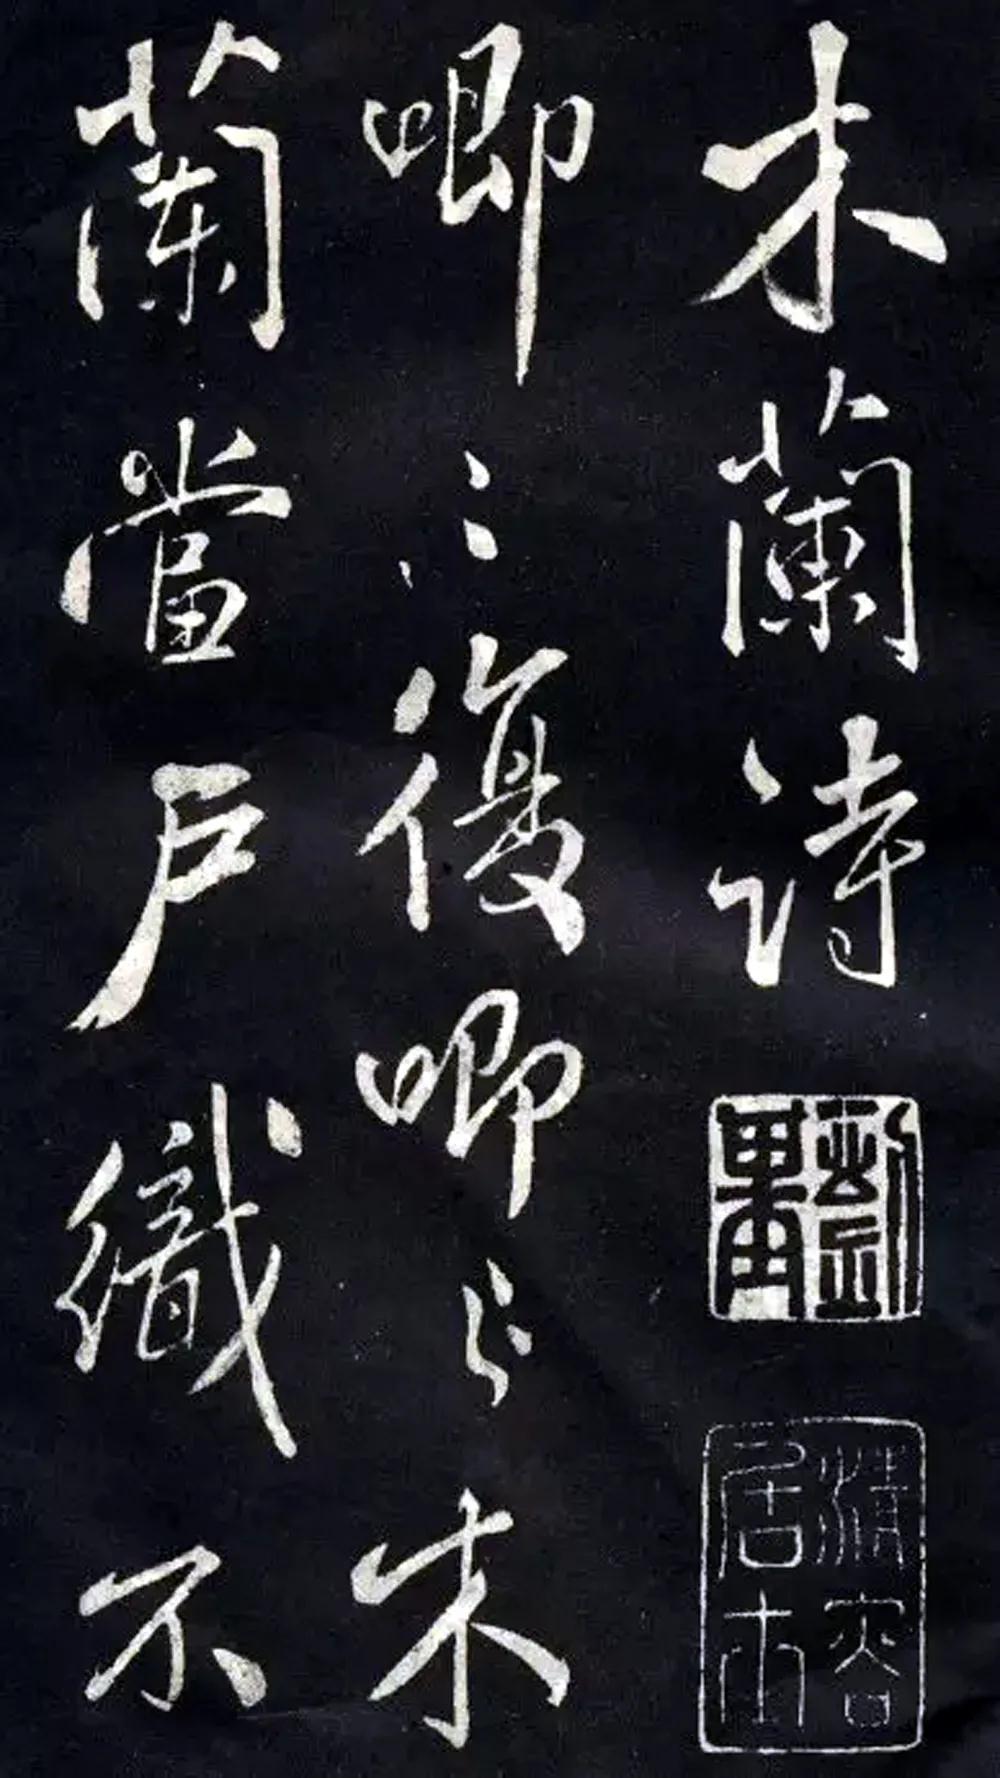 木蘭詩
清容
居士
唧〻復唧〻木
蘭當戶織不